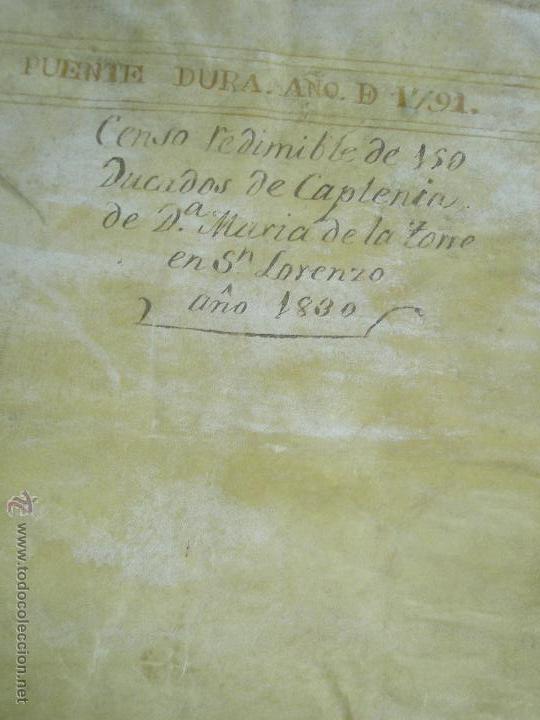 PUENTE DURA. AÑO. D 1791.
Censo redimible de 150
Ducados de Caplenia
de D.ª Maria de la torre
en Sn Lorenzo
año 1830
www.todocoleccion.net